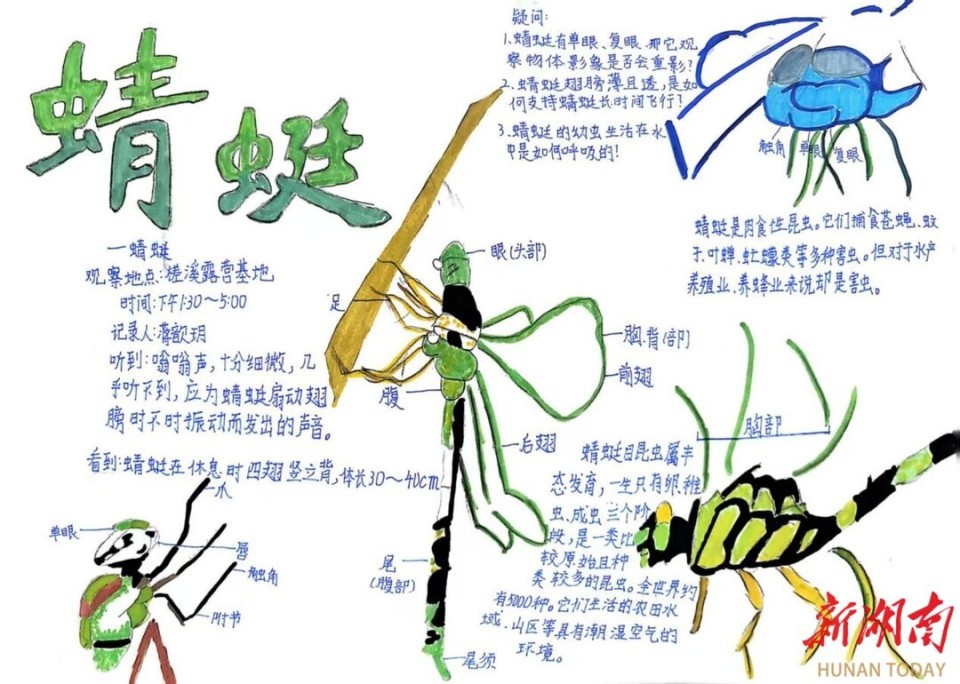 蜻蜓
疑问:
1.蜻蜓有单眼、复眼、那它观
察物体影象是否会重影?
2.蜻蜓翅膀薄且透,是如
何支持蜻蜓长时间飞行?
3.蜻蜓的幼虫生活在水
中是如何呼吸的!
触角 单眼 复眼
蜻蜓是肉食性昆虫。它们捕食苍蝇、蚊
子、叶蝉、虻蠓类等多种害虫。但对于水产
养殖业、养蜂业来说却是害虫。
一蜻蜓
观察地点:槎溪露营基地
时间:下午1:30~5:00
记录人:
听到:嗡嗡声,十分细微,几
乎听不到,应为蜻蜓扇动翅
膀时不时振动而发出的声音。
看到:蜻蜓在休息时四翅竖立背,体长30~40cm
眼(头部)
足
胸.背(部)
前翅
腹
后翅
尾
(腹部)
尾须
爪
单眼
唇
触角
附节
胸部
蜻蜓目昆虫属半
态发育,一生只有卵、稚
虫、成虫三个阶
段,是一类比
较原始且种
类较多的昆虫。全世界约
有5000种。它们生活的农田水
域、山区等具有潮湿空气的
环境。
新湖南
HUNAN TODAY